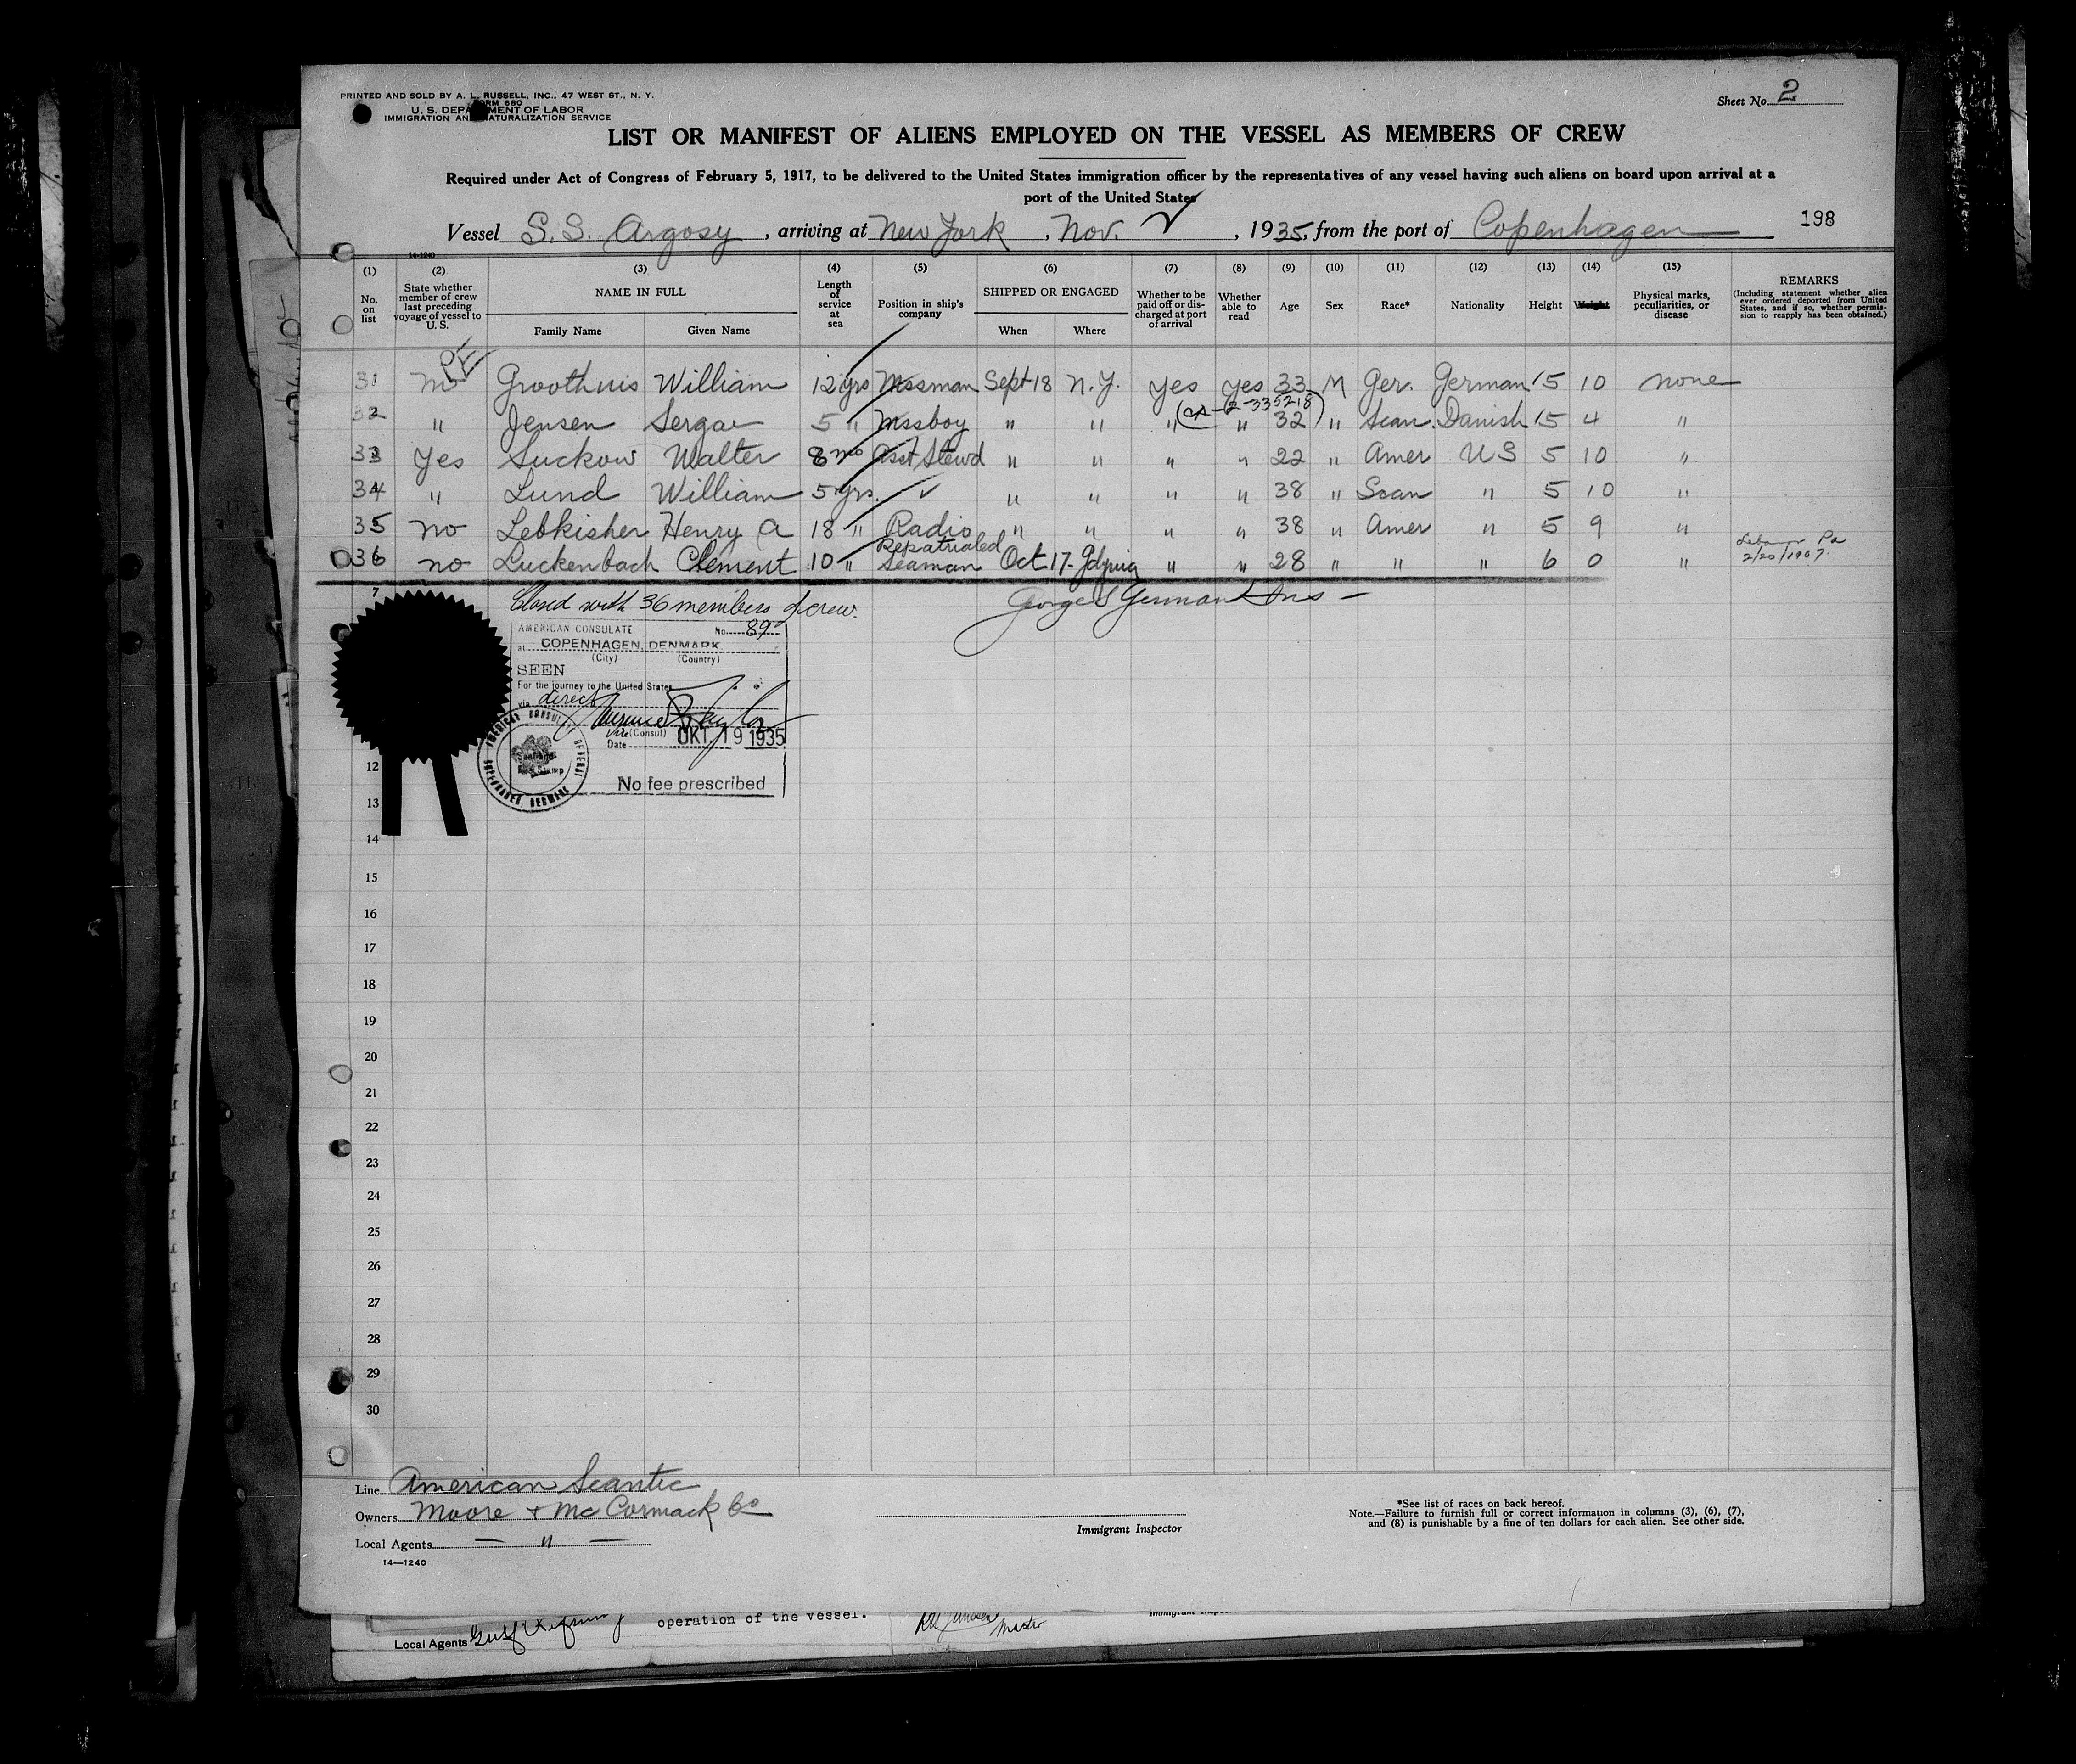 PRINTED AND SOLD BY A. L. RUSSELL, INC., 47 WEST ST., N. Y.
FORM 680
U. S. DEPARTMENT OF LABOR
IMMIGRATION AND NATURALIZATION SERVICE
Sheet No. 2
LIST OR MANIFEST OF ALIENS EMPLOYED ON THE VESSEL AS MEMBERS OF CREW
Required under Act of Congress of February 5, 1917, to be delivered to the United States immigration officer by the representatives of any vessel having such aliens on board upon arrival at a
port of the United States
Vessel S.S. Argosy, arriving at New York, Nov. ✓, 1935, from the port of Copenhagen 198
14-1240
(1) (2) (3) (4) (5) (6) (7) (8) (9) (10) (11) (12) (13) (14) (15)
No. on list
State whether member of crew last preceding voyage of vessel to U. S.
NAME IN FULL
Family Name Given Name
Length of service at sea
Position in ship's company
SHIPPED OR ENGAGED
When Where
Whether to be paid off or discharged at port of arrival
Whether able to read
Age
Sex
Race*
Nationality
Height
Weight
Physical marks, peculiarities, or disease
REMARKS
(Including statement whether alien ever ordered deported from United States, and if so, whether permission to reapply has been obtained.)
PE
31 no Groothuis William 12 yrs Mssman Sept 18 N.Y. Yes Yes 33 M Ger. German 5 10 none
(CA-2-335218)
32 " Jensen Sergae 5 " Mssboy " " " " 32 " Scan Danish 5 4 "
33 Yes Suckow Walter 8 mo Asst Stewd " " " " 22 " Amer US 5 10 "
34 " Lund William 5 yrs. ✓ " " " " 38 " Scan " 5 10 "
35 no Lebkisher Henry A 18 " Radio " " " " 38 " Amer " 5 9 "
36 no Luckenbach Clement 10 " Repatriated Seaman Oct 17 Gdynia " " 28 " " " 6 0 " Lebanon Pa 2/20/1907.
7 Closed with 36 members of crew. George S German Ins
AMERICAN CONSULATE No. 89
at COPENHAGEN, DENMARK
(City) (Country)
SEEN
For the journey to the United States
via direct
Vice (Consul)
Date OKT. 19 1935
No fee prescribed
AMERICAN CONSUL GENERAL COPENHAGEN DENMARK
12
13
14
15
16
17
18
19
20
21
22
23
24
25
26
27
28
29
30
Line American Scantic
Owners Moore & McCormack Co
Local Agents — " —
14—1240
Immigrant Inspector
*See list of races on back hereof.
Note.—Failure to furnish full or correct information in columns (3), (6), (7),
and (8) is punishable by a fine of ten dollars for each alien. See other side.
operation of the vessel.
Master
Local Agents